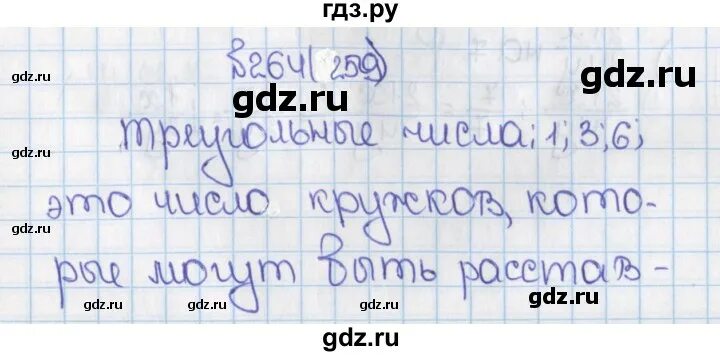 гдз.ру
№264(259)
треугольные числа; 1; 3; 6;
это число кружков, кото-
рые могут быть расстав-
gdz.ru
gdz.ru
gdz.ru
gdz.ru
gdz.ru
gdz.ru
gdz.ru
gdz.ru
gdz.ru
gdz.ru
gdz.ru
gdz.ru